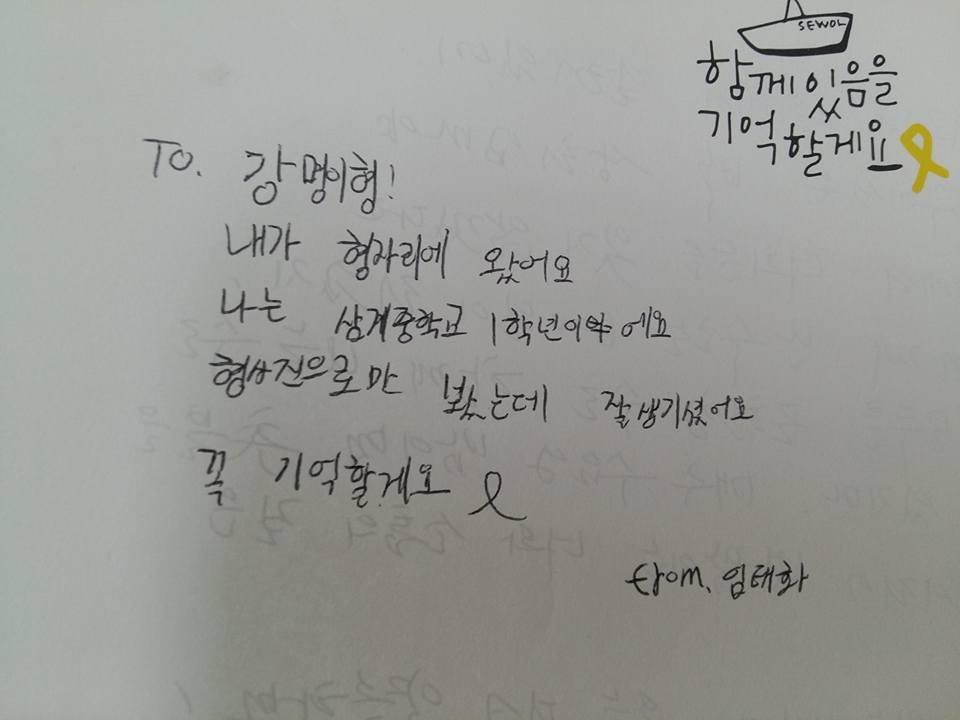 SEWOL
함께 있음을
기억할게요
TO. 강명이형!
내가 형자리에 왔어요
나는 삼계중학교 1학년이에요
형사진으로만 봤는데 잘생기셨어요
꼭 기억할게요
from. 임태화